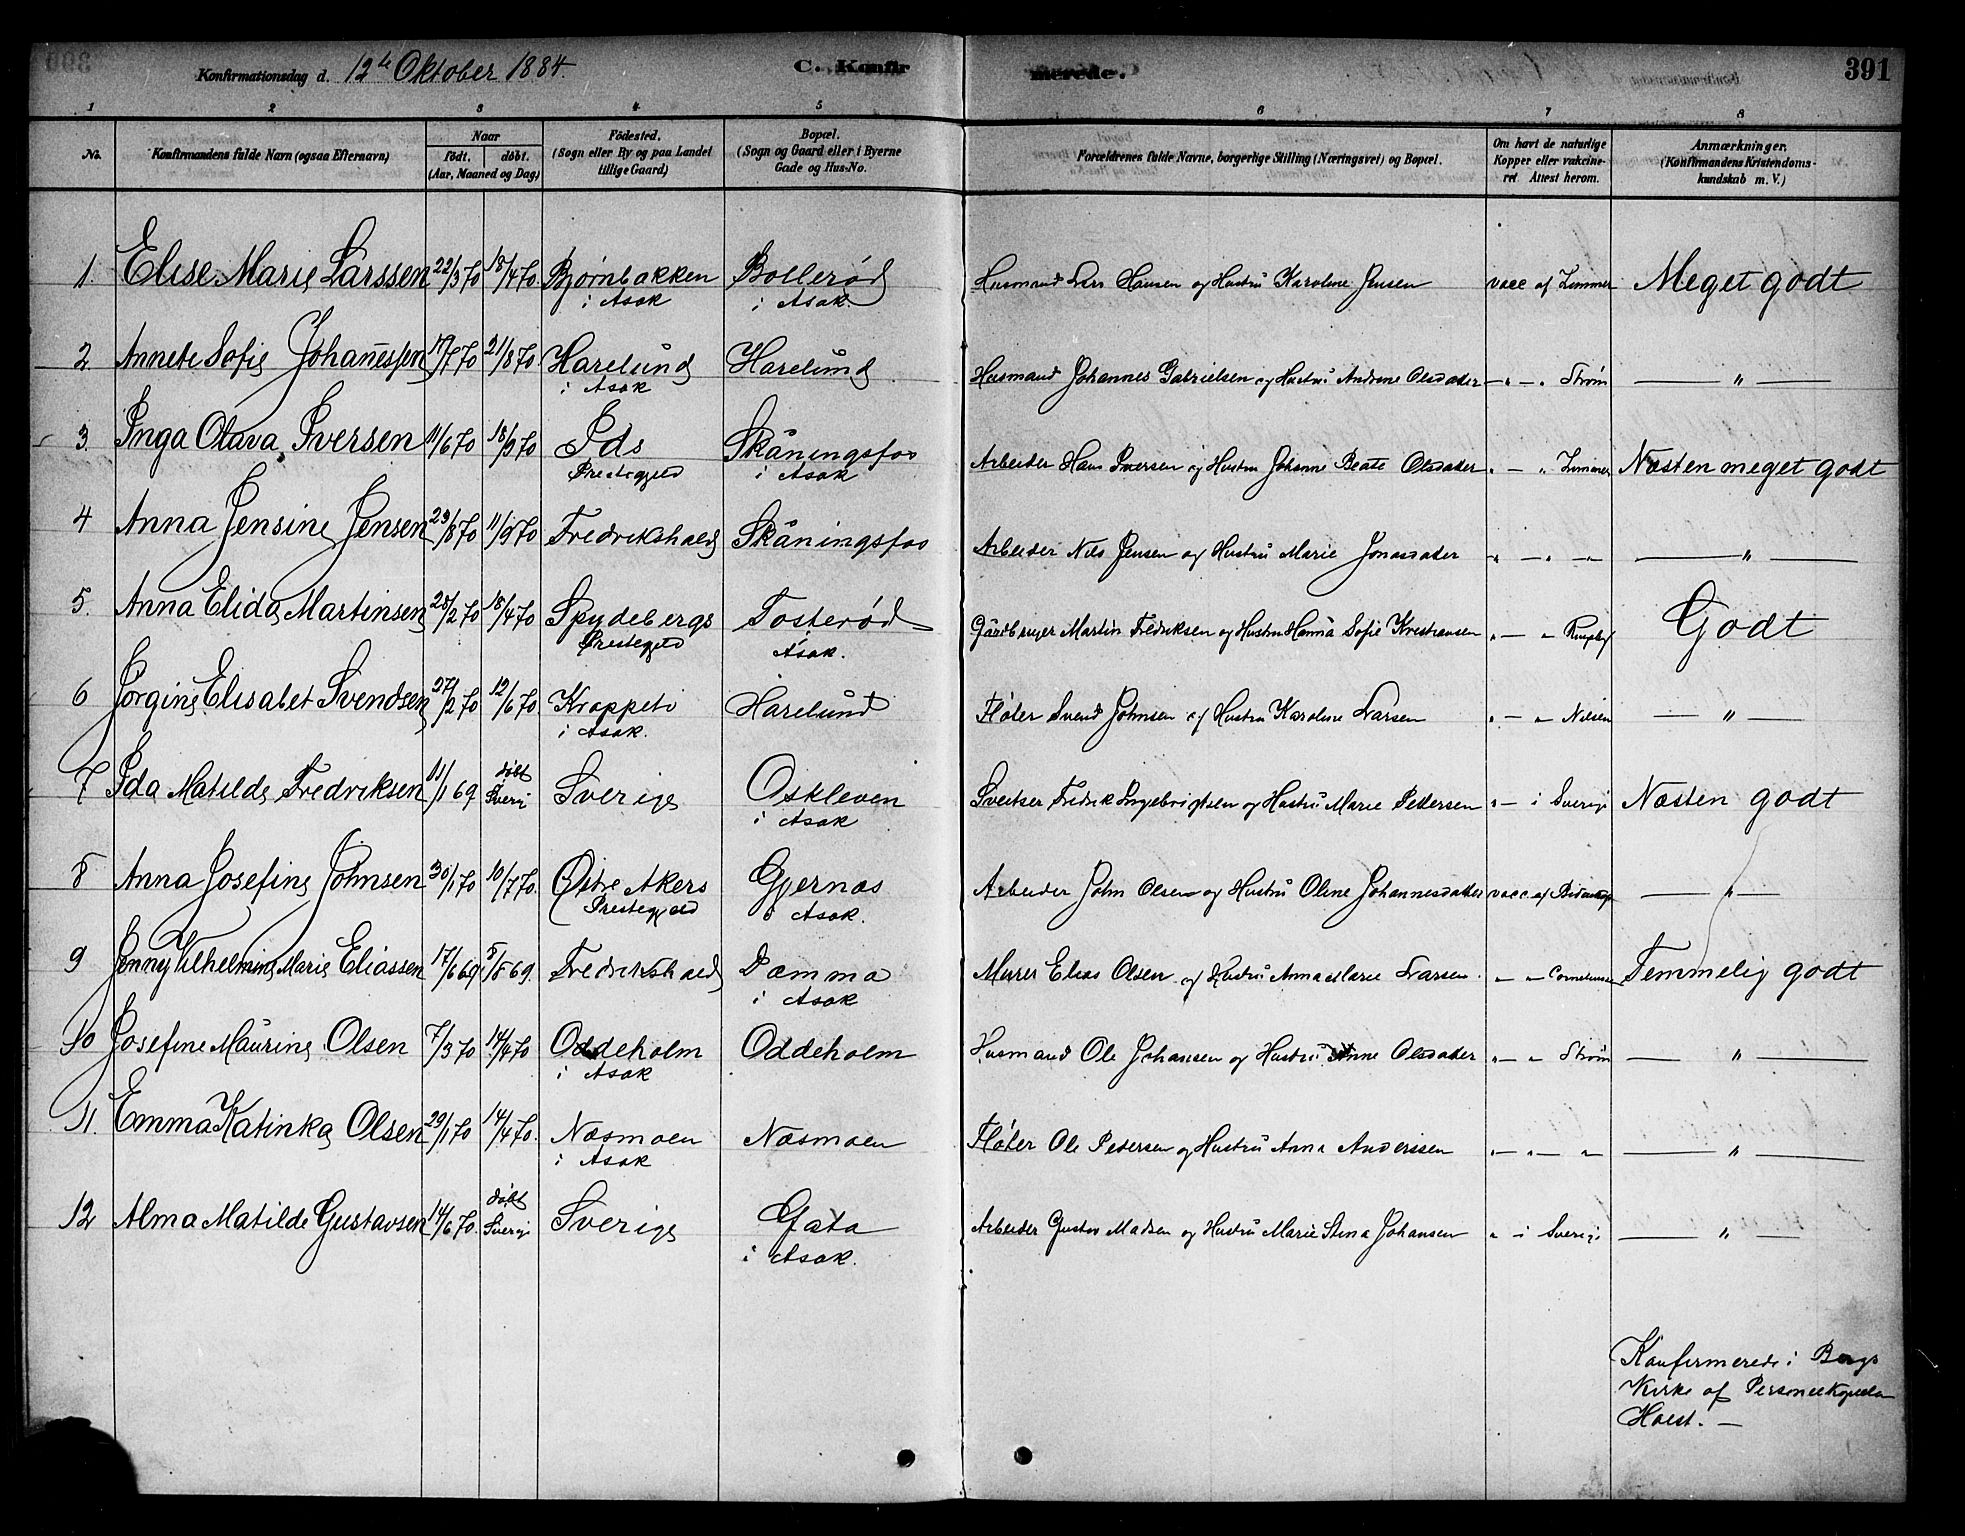 Konfirmationsdag d. 12te Oktober 1884. C. Konfirmerede. 391
1 2 3 4 5 6 7 8
No. Konfirmandens fulde Navn (ogsaa Efternavn) Naar født. døbt. (Aar, Maaned og Dag) Fødested. (Sogn eller By og paa Landet tillige Gaard) Bopæl. (Sogn og Gaard eller i Byerne Gade og Hus-No. Forældrenes fulde Navne, borgerlige Stilling (Næringsvei) og Bopæl. Om havt de naturlige Kopper eller vakcineret. Attest herom. Anmærkninger. (Konfirmandens Kristendomskundskab m. V.)
1. Elise Marie Larssen 22/3 70 18/4 70. Bjørnbakken i Asak Bollerød i Asak Husmand Lars Hansen og Hustru Karoline Jensen vacc af Zimmer Meget godt
2 Annete Sofie Johanessen 17/7 70 21/8 70. Harelund i Asak Harelund Husmand Johannes Gabrielsen og Hustru Andrine Olsdatter — " — " Strøm — " —
3. Inga Olava Iversen 11/6 70 18/9 70 Ids Prestegjeld Skåningsfos i Asak Arbeider Hans Iversen og Hustru Johanne Beate Olsdatter " — " Zimmer Næsten meget godt
4 Anna Jensine Jensen 23/8 70 11/9 70 Fredrikshald Skåningsfos Arbeider Nils Jensen og Hustru Marie Jonasdatter " — " — " — — " —
5. Anna Elida Martinsen 28/2 70 18/4 70 Spydebergs Prestegjeld Tosterød i Asak. Gårdbruger Martin Fredriksen og Hustru Hanna Sofie Kristiansen " — " Godt
6 Jørgine Elisabet Svendsen 27/2 70 12/6 70. Krappeto i Asak. Harelund Fløter Svend Johnsen og Hustru Karoline Larsen " — " Nilsen — " —
7 Ida Matilde Fredriksen 11/1 69 døbt Sverige Sverige Oskleven i Asak Sveitser Fredrik Ingebrigtsen og Hustru Marie Pettersen " — i Sverige Næsten godt
8 Anna Josefine Johnsen 30/1 70 10/7 70. Østre Akers Prestegjeld Gjernæs i Asak. Arbeider John Olsen og Hustru Oline Johannesdatter vacc. af — " —
9 Jenny Vilhelmine Marie Eliassen 17/6 69 5/8 69. Fredrikshald Damma i Asak Murer Elias Olsen og Hustru Anna Marie Larsen. " — " Corneliussen Temmelig godt
10 Josefine Maurine Olsen 7/3 70 14/4 70 Oddeholm i Asak Oddeholm Husmand Ole Johansen og Hustru Anne Olsdatter " — " Strøm — " —
11. Emma Katinka Olsen 29/1 70 14/4 70. Næsmoen i Asak Næsmoen Fløter Ole Pedersen og Hustru Anna Anderssen " — " — " — " —
12 Alma Matilde Gustavsen 14/6 70. døbt Sverige Sverige Gata i Asak. Arbeider Gustav Madsen og Hustru Marie Stina Johansen " i Sverige — " —
Konfirmerede i Bergs
Kirke af Personelkapellan
Holst. —